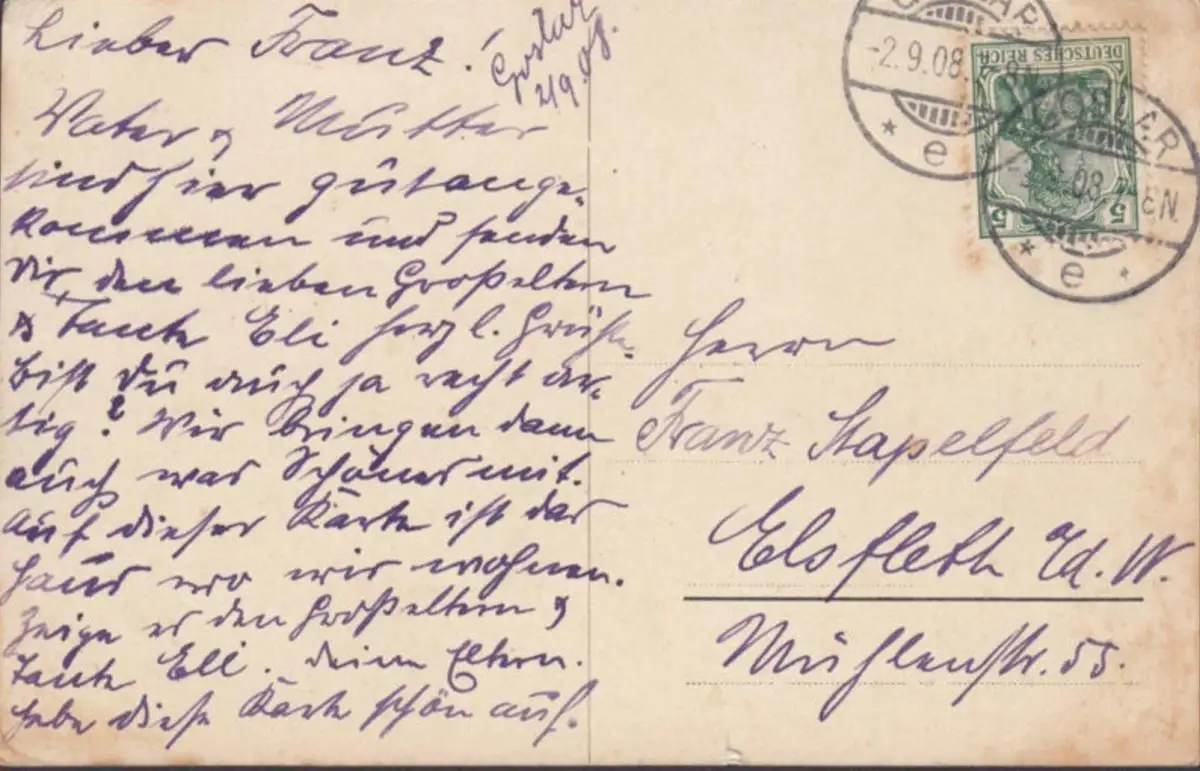 Lieber Franz!
Goslar
2/9.08.
Vater & Mutter
sind hier gut ange-
kommen und senden
Dir, den lieben Großeltern
& Tante Eli herzl. Grüße.
Bist Du auch ja recht ar-
tig? Wir bringen dann
auch was Schönes mit.
Auf dieser Karte ist das
Haus wo wir wohnen.
Zeige es den Großeltern &
Tante Eli. Deine Eltern.
Hebe diese Karte schön auf.
GOSLAR
-2.9.08. 7-8N.
e
DEUTSCHES REICH
5 5
GOSLAR
08. 7-8N.
e
Herrn
Franz Stapelfeld
Elsfleth a/d. W.
Mühlenstr. 55.